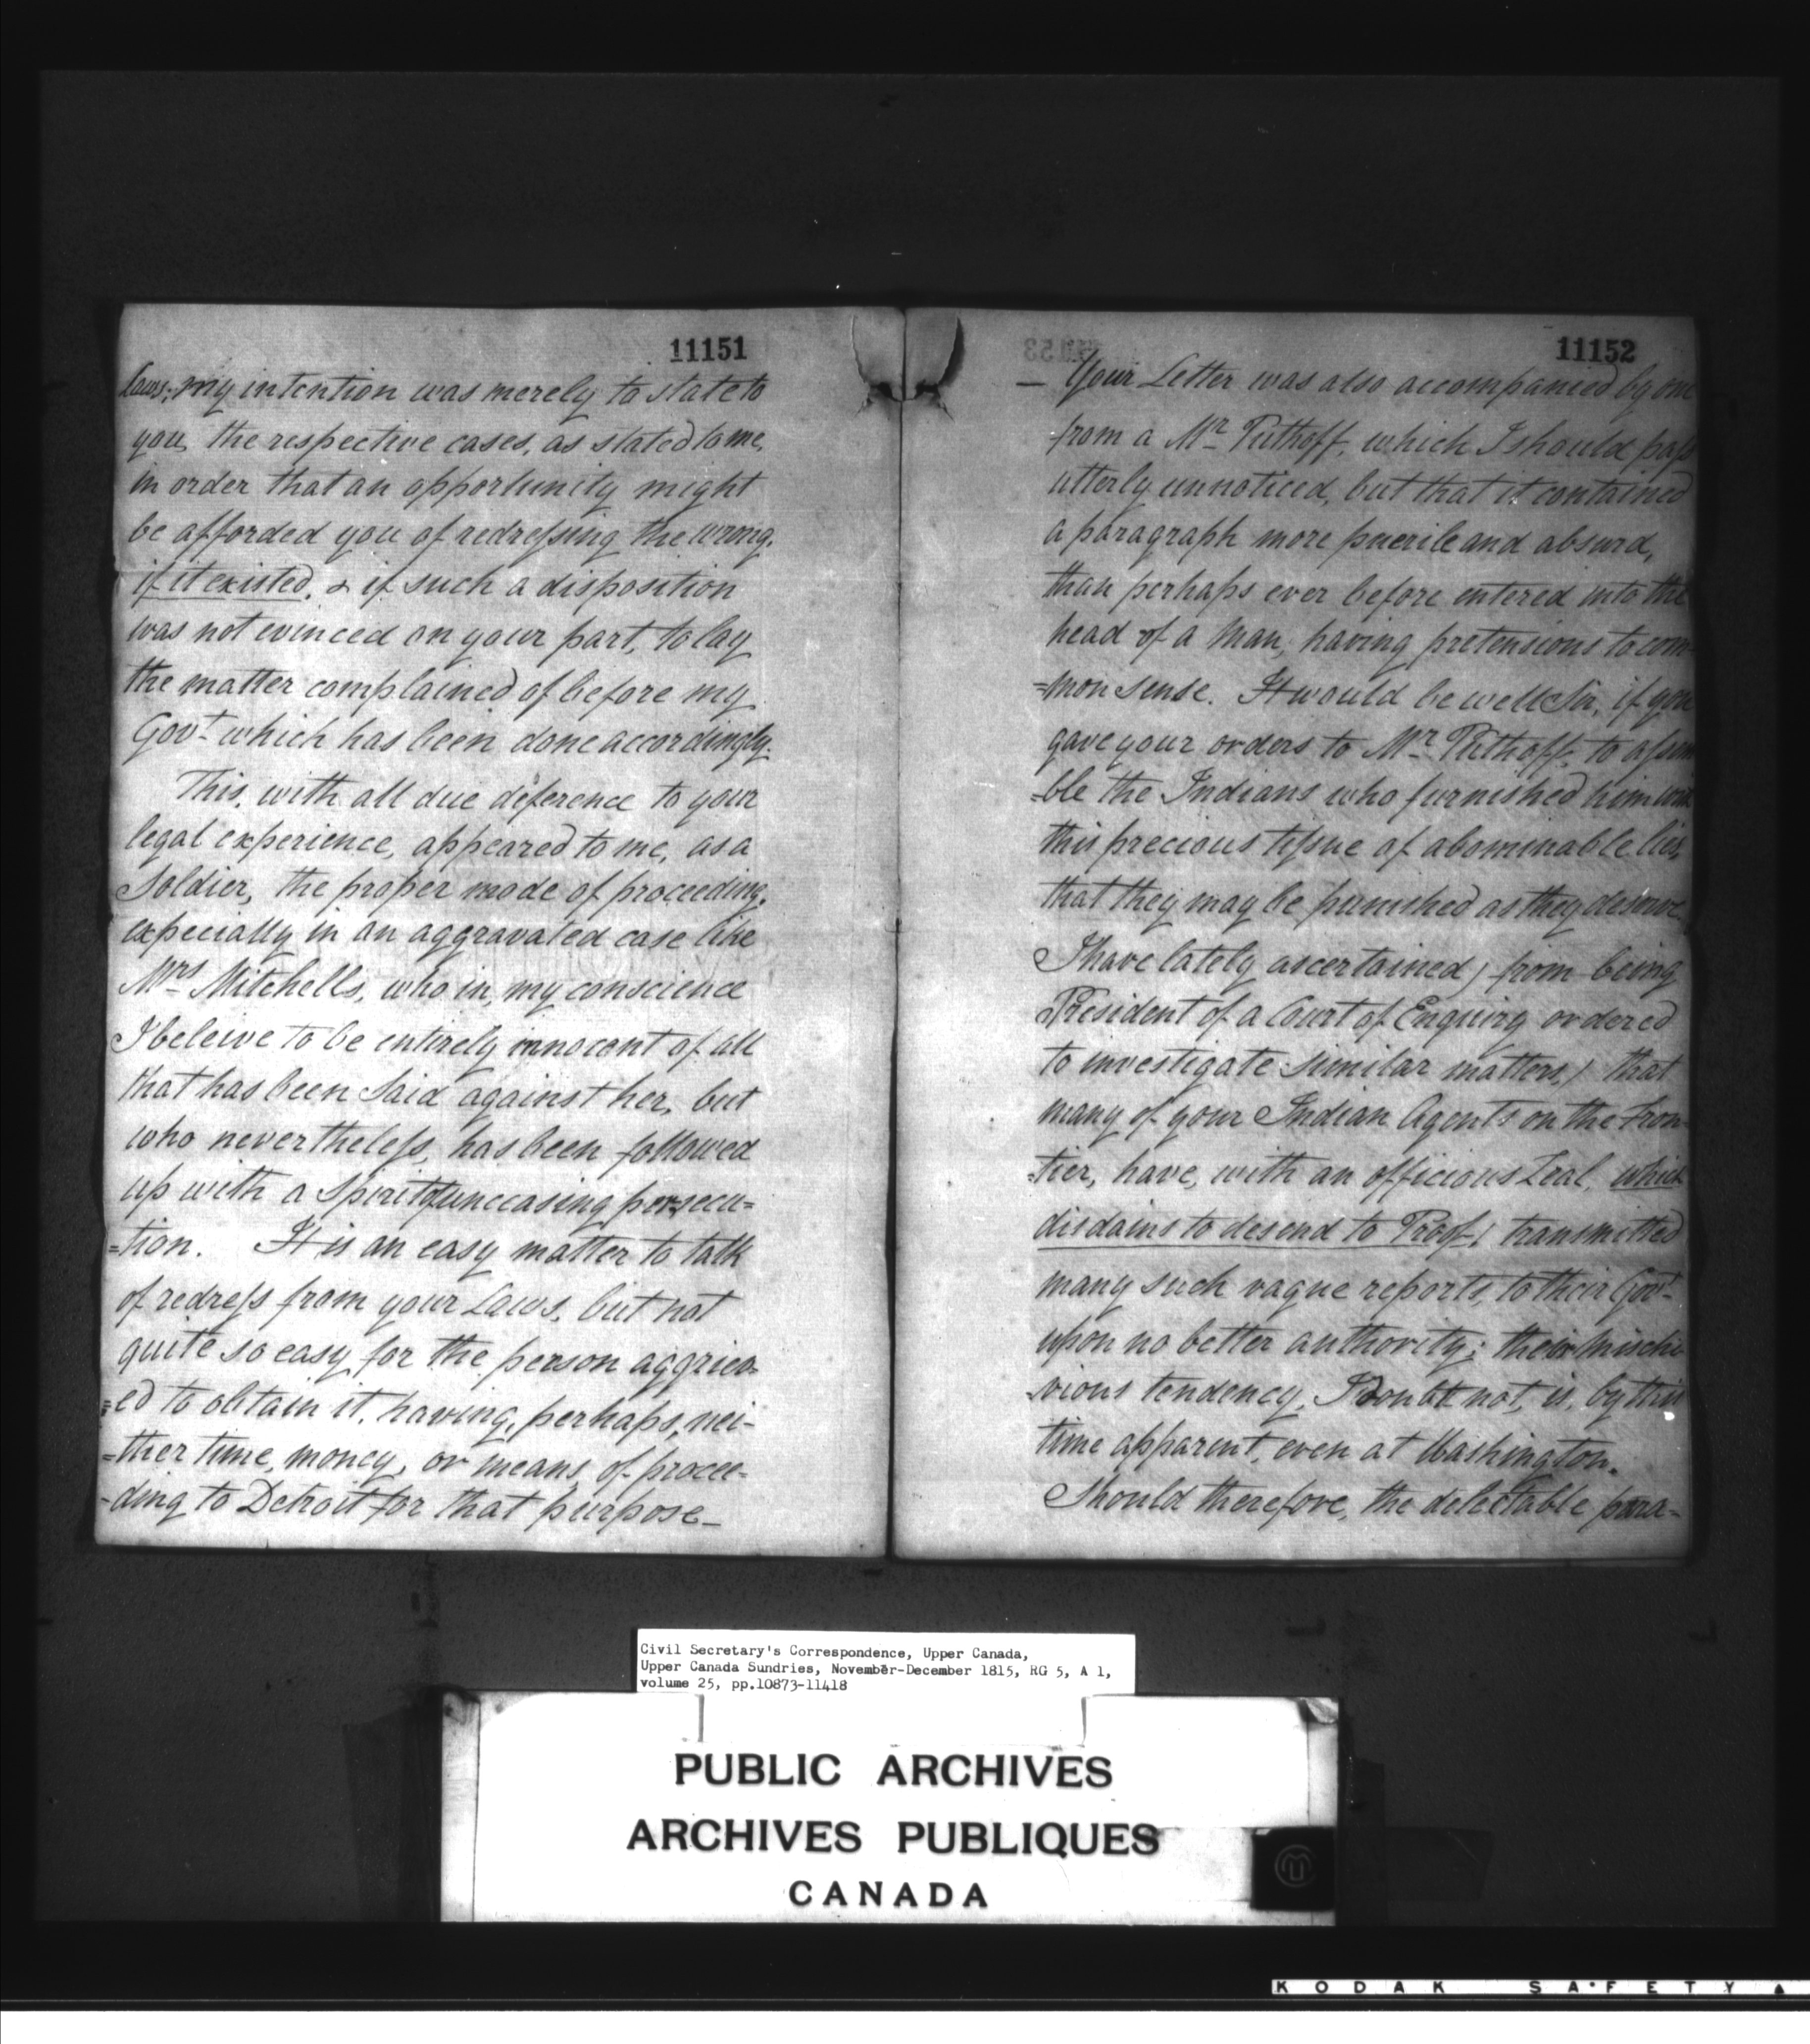 11151
laws; my intention was merely to state to
you, the respective cases, as stated to me,
in order that an opportunity might
be afforded you of redressing the wrong,
if it existed, & if such a disposition
was not evinced on your part, to lay
the matter complained of before my
Govt which has been done accordingly.
This, with all due deference to your
legal experience, appeared to me, as a
Soldier, the proper mode of proceeding,
especially in an aggravated case like
Mrs Mitchells, who in my conscience
I beleive to be entirely innocent of all
that has been said against her, but
who nevertheless, has been followed
up with a Spirit of unceasing persecu=
=tion. It is an easy matter to talk
of redress from your Laws, but not
quite so easy for the person aggriev-
=ed to obtain it, having, perhaps, nei-
=ther time, money, or means of procee-
-ding to Detroit for that purpose_
11152
_ Your Letter was also accompanied by one
from a Mr Puthoff, which I should pass
utterly unnoticed, but that it contained
a paragraph more puerile and absurd,
than perhaps ever before entered into the
head of a Man, having pretensions to com-
=mon sense. It would be well Sir, if you
gave your orders to Mr Puthoff, to assem
-ble the Indians who furnished him with
this precious tissue of abominable lies,
that they may be punished as they deserve.
I have lately ascertained, (from being
President of a Court of Enquiry ordered
to investigate similar matters,) that
many of your Indian Agents on the Fron-
=tier, have, with an officious Zeal, which
disdains to desend to Proof! transmitted
many such vague reports, to their Govt
upon no better authority; their mischie
-vious tendency, I doubt not, is, by this
time apparent, even at Washington.
Should therefore, the delectable para-
Civil Secretary's Correspondence, Upper Canada,
Upper Canada Sundries, November-December 1815, RG 5, A 1,
volume 25, pp.10873-11418
PUBLIC ARCHIVES
ARCHIVES PUBLIQUES
CANADA
KODAK SAFETY